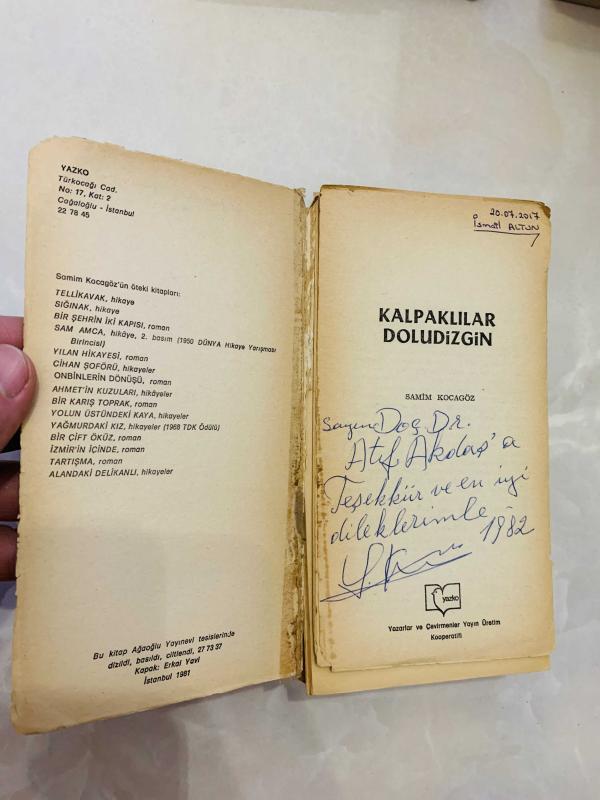 YAZKO
Türkocağı Cad.
No: 17, Kat: 2
Cağaloğlu - İstanbul
22 78 45
Samim Kocagöz'ün öteki kitapları:
TELLİKAVAK, hikaye
SIĞINAK, hikaye
BİR ŞEHRİN İKİ KAPISI, roman
SAM AMCA, hikâye, 2. basım (1950 DÜNYA Hikaye Yarışması
Birincisi)
YILAN HİKAYESİ, roman
CİHAN ŞOFÖRÜ, hikayeler
ONBİNLERİN DÖNÜŞÜ, roman
AHMET'İN KUZULARI, hikâyeler
BİR KARIŞ TOPRAK, roman
YOLUN ÜSTÜNDEKİ KAYA, hikayeler
YAĞMURDAKİ KIZ, hikayeler (1968 TDK Ödülü)
BİR ÇİFT ÖKÜZ, roman
İZMİR'İN İÇİNDE, roman
TARTIŞMA, roman
ALANDAKİ DELİKANLI, hikayeler
Bu kitap Ağaoğlu Yayınevi tesislerinde
dizildi, basıldı, ciltlendi, 27 73 37
Kapak: Erkal Yavi
İstanbul 1981
20.07.2017
İsmail ALTUN
KALPAKLILAR
DOLUDİZGİN
SAMİM KOCAGÖZ
Sayın Doç. Dr.
Atıf Akdaş'a
Teşekkür ve en iyi
dileklerimle
1982
yazko
Yazarlar ve Çevirmenler Yayın Üretim
Kooperatifi